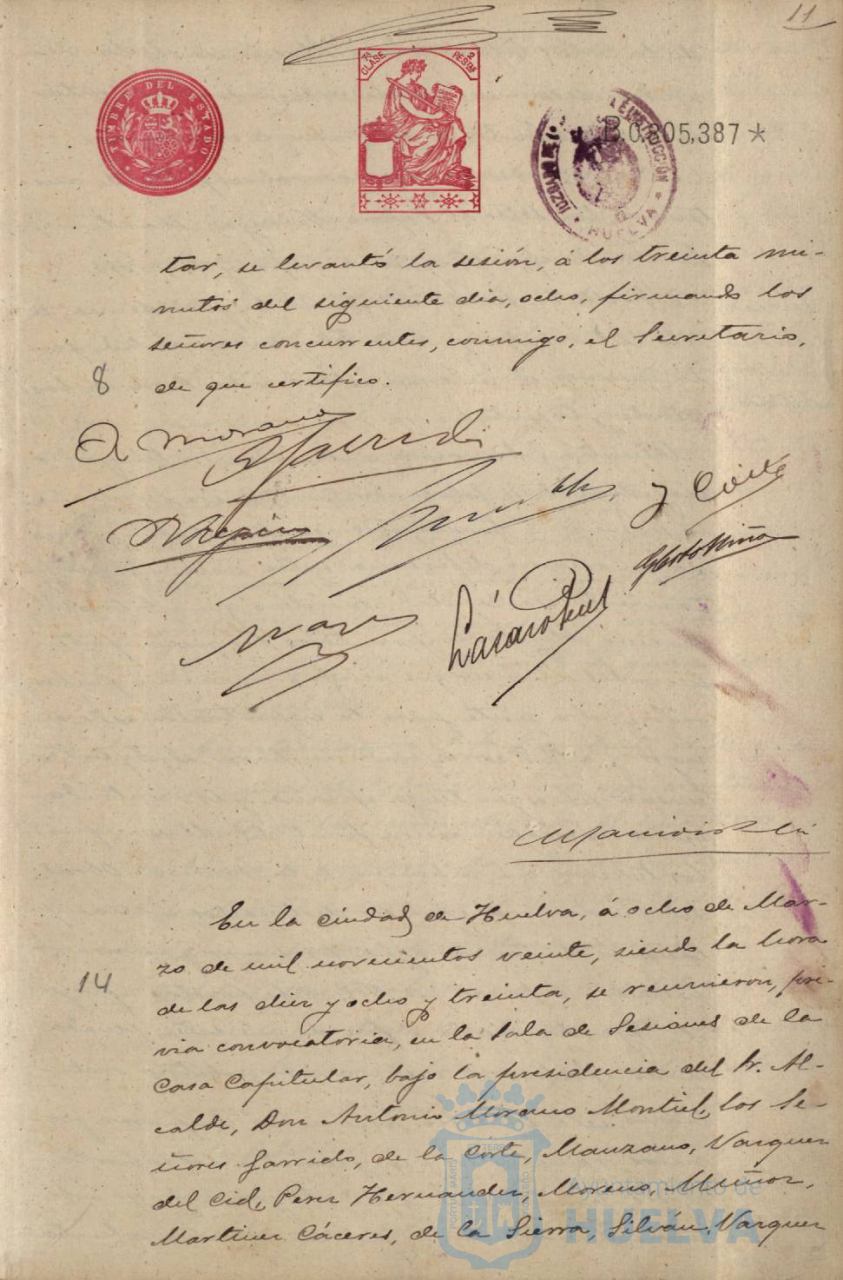 11
TIMBRE DEL ESTADO
CLASE
B0.805,387*
HUELVA
tar, se levantó la sesión, á los treinta mi-
nutos del siguiente dia, ocho, firmando los
señores concurrentes, conmigo, el Secretario,
8
de que certifico.
A Moreno
Garrido
y Corte
Lázaro
En la ciudad de Huelva, á ocho de Mar-
zo de mil novecientos veinte, siendo la hora
14
de las diez y ocho y treinta, se reunieron, pré-
via convocatoria, en la Sala de Sesiones de la
Casa Capitular, bajo la presidencia del Sr. Al-
calde, Don Antonio Moreno Montiel, los Se-
ñores Garrido, de la Corte, Manzano, Vazquez
del Cid, Perez Hernandez, Moreno, Muñoz,
Martinez Cáceres, de la Sierra, Silván, Vazquez
Ayuntamiento de
HUELVA